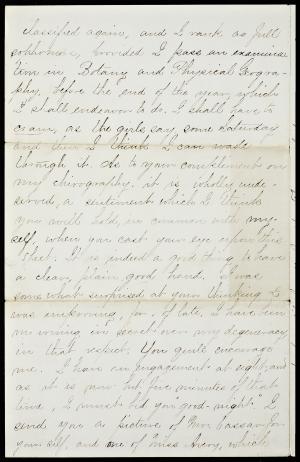 classified again, and I rank as full
sophomore, provided I pass an examina-
tion in Botany and Physical Geogra-
phy, before the end of the year, which
I shall endeavor to do. I shall have to
cram, as the girls say, some Saturday
and then I think I can walk
through it. As to your compliment on
my chirography, it is wholly unde-
served, a sentiment which I think
you will hold, in common with my-
self, when you cast your eye upon this
sheet. It is indeed a good thing to have
a clear, plain, good hand. I was
somewhat surprised at your thinking I
was improving, for, of late, I have been
mourning in secret over my degeneracy
in that respect. You girls encourage
me. I have an engagement at eight, and
as it is now but five minutes of that
time, I must bid you "good-night". I
send you a picture of Mr. Vassar for
yourself, and one of Miss Avery, which